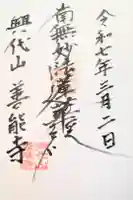 令和七年三月二日
南無妙法蓮華経
興代山 善能寺